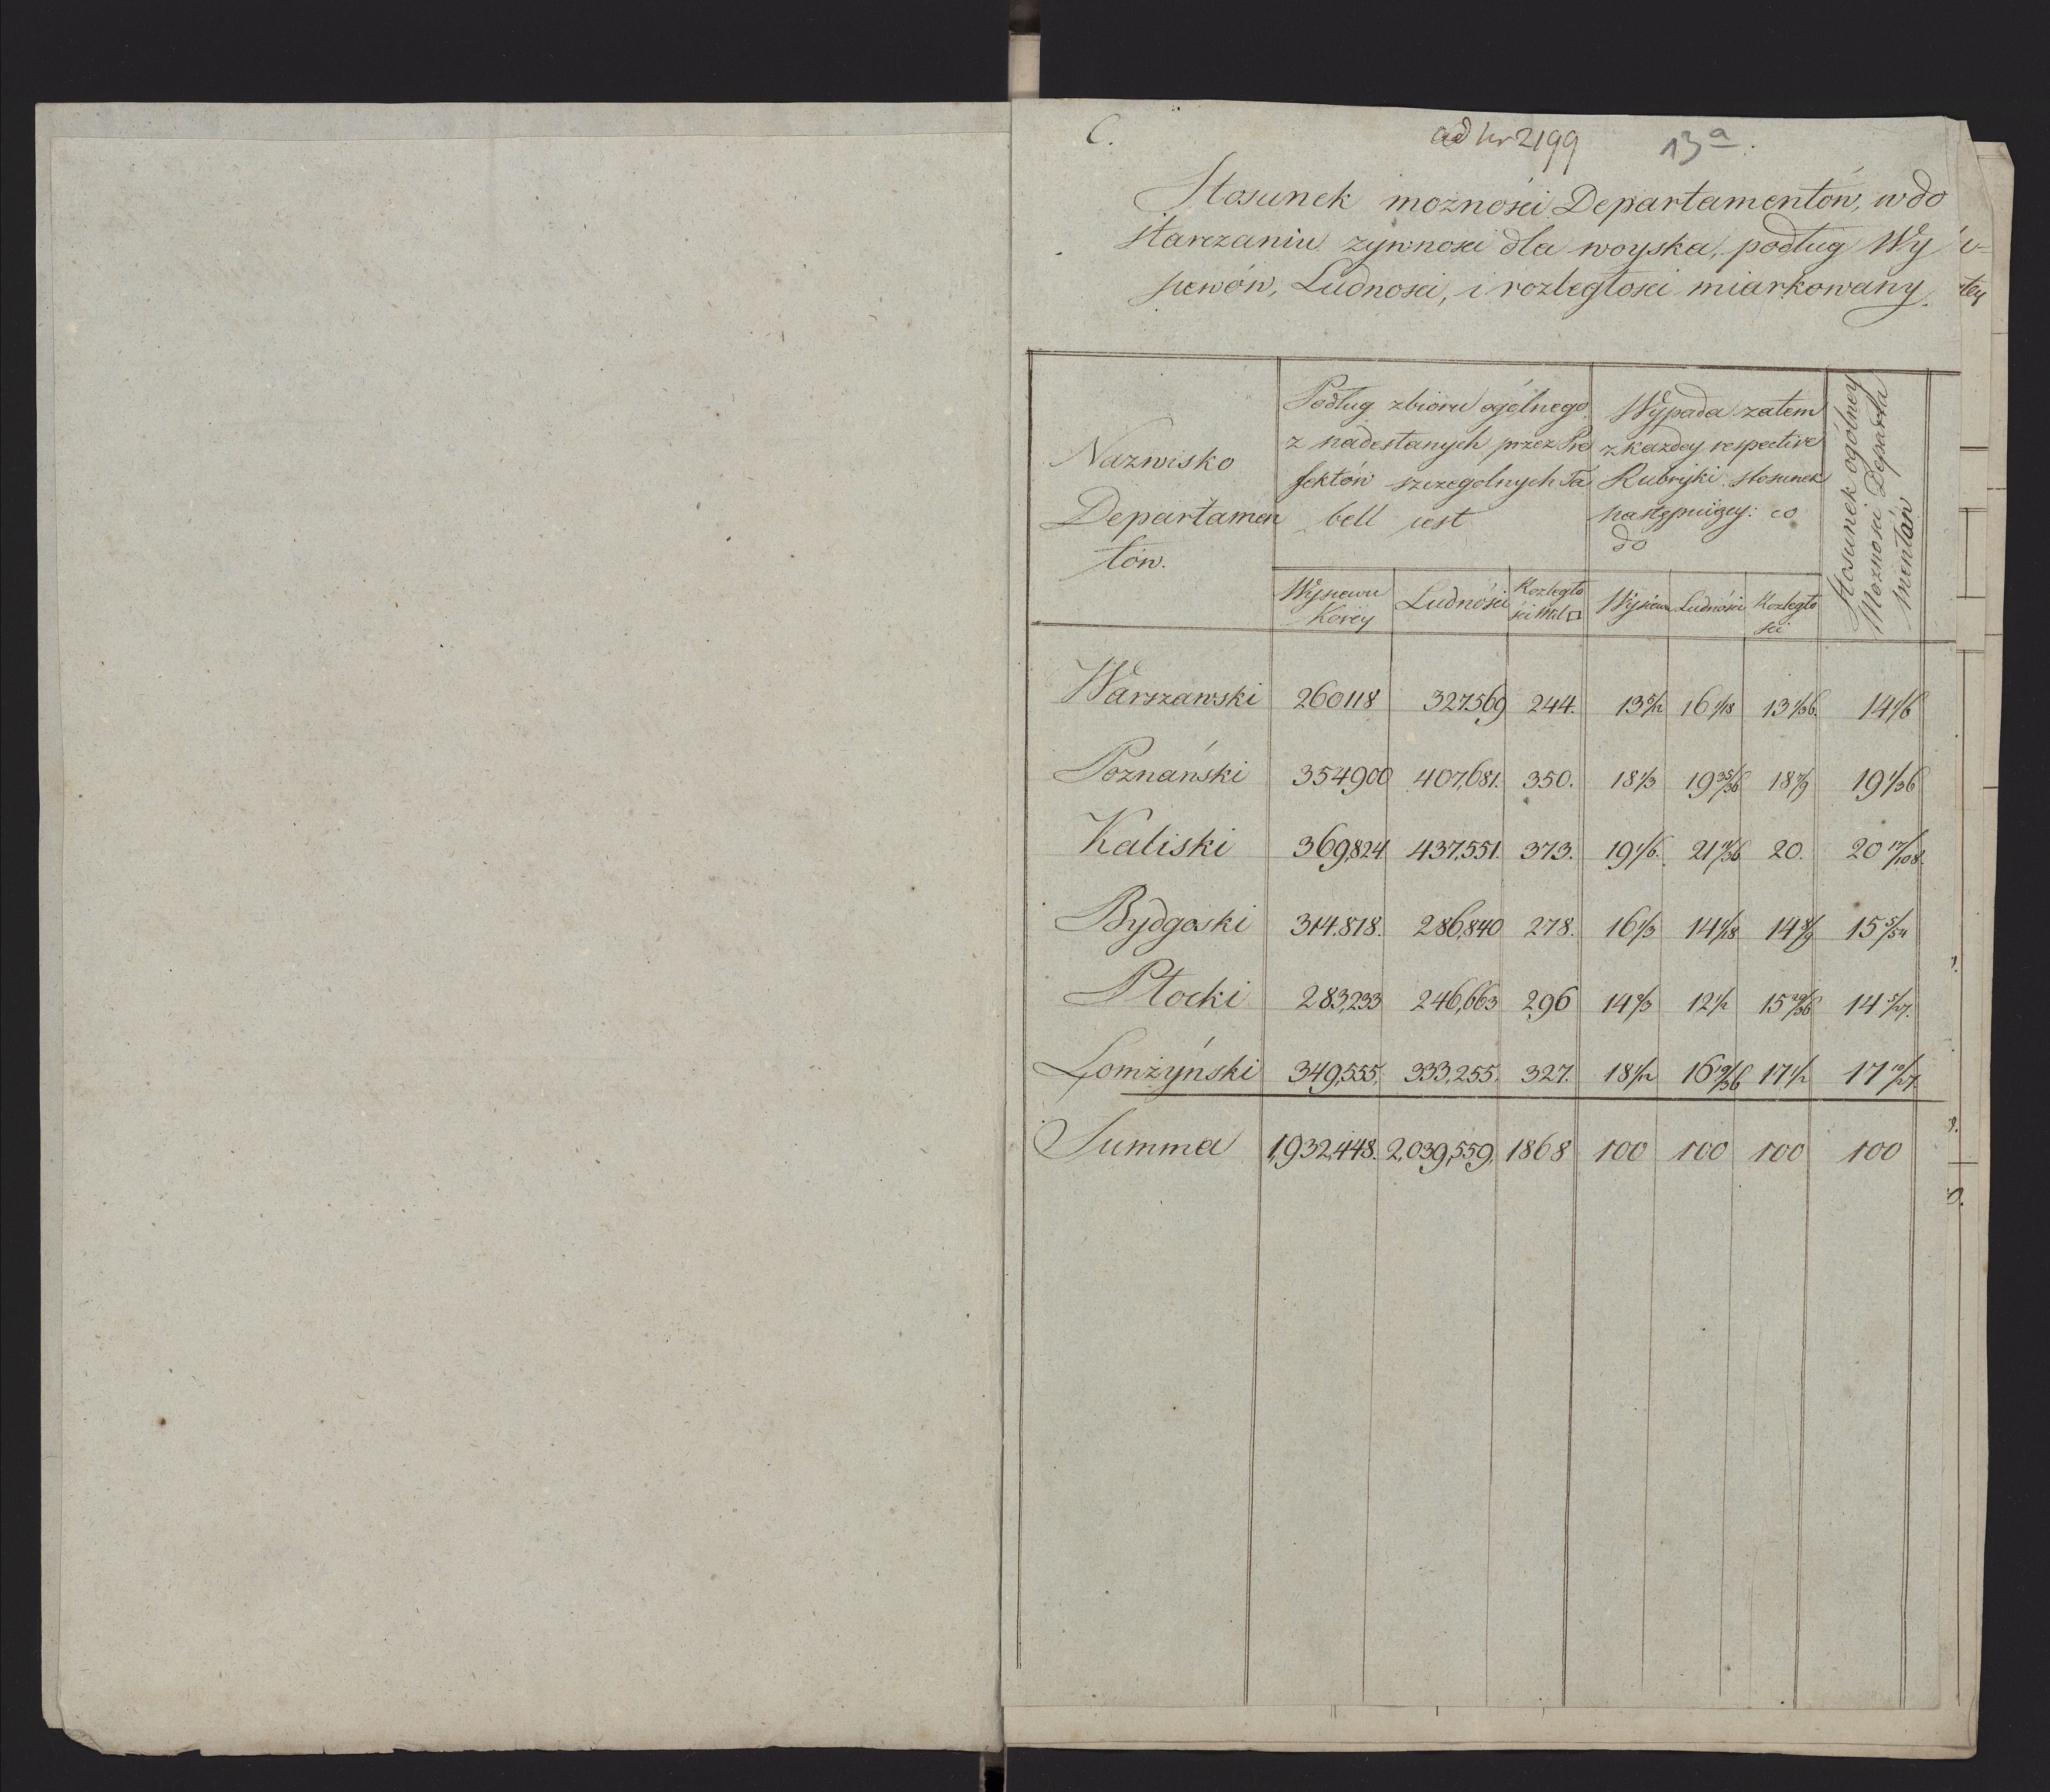 C. ad Nr 2199 13a.
Stosunek możności Departamentów, w do
starczaniu zywnosci dla woyska, podług Wy
siewów, Ludnosci, i rozległosci miarkowany.
Nazwisko
Departamen
tów.
Podług zbioru ogólnego
z nadesłanych przez Pre
fektów szczegolnych Ta
bell iest
Wysiewu
Korcy
Ludności
Rozległo
ści Mil □
Wypada zatem
z kazdey respective
Rubryki stosunek
następuiący: co
do
Wysiewu
Ludności
Rozległo
ści
Stosunek ogólney
Mozności Departa
mentów
Warszawski 260118 327,569 244. 13 5/12 16 1/18 13 1/36. 14 1/6
Poznański 354900 407,681. 350. 18 1/3 19 35/36 18 7/9 19 1/36
Kaliski 369,824 437,551. 373. 19 1/6. 21 11/36 20. 20 17/108.
Bydgoski 314.818. 286,840 278. 16 1/3 14 1/18 14 8/9 15 5/54
Płocki 283,233 246,663 296 14 2/3 12 1/12 15 29/36 14 5/27.
Łomżyński 349,555, 333,255. 327. 18 1/12 16 19/36 17 1/2 17 10/27.
Summa 1,932,448. 2,039,559, 1868 100 100 100 100